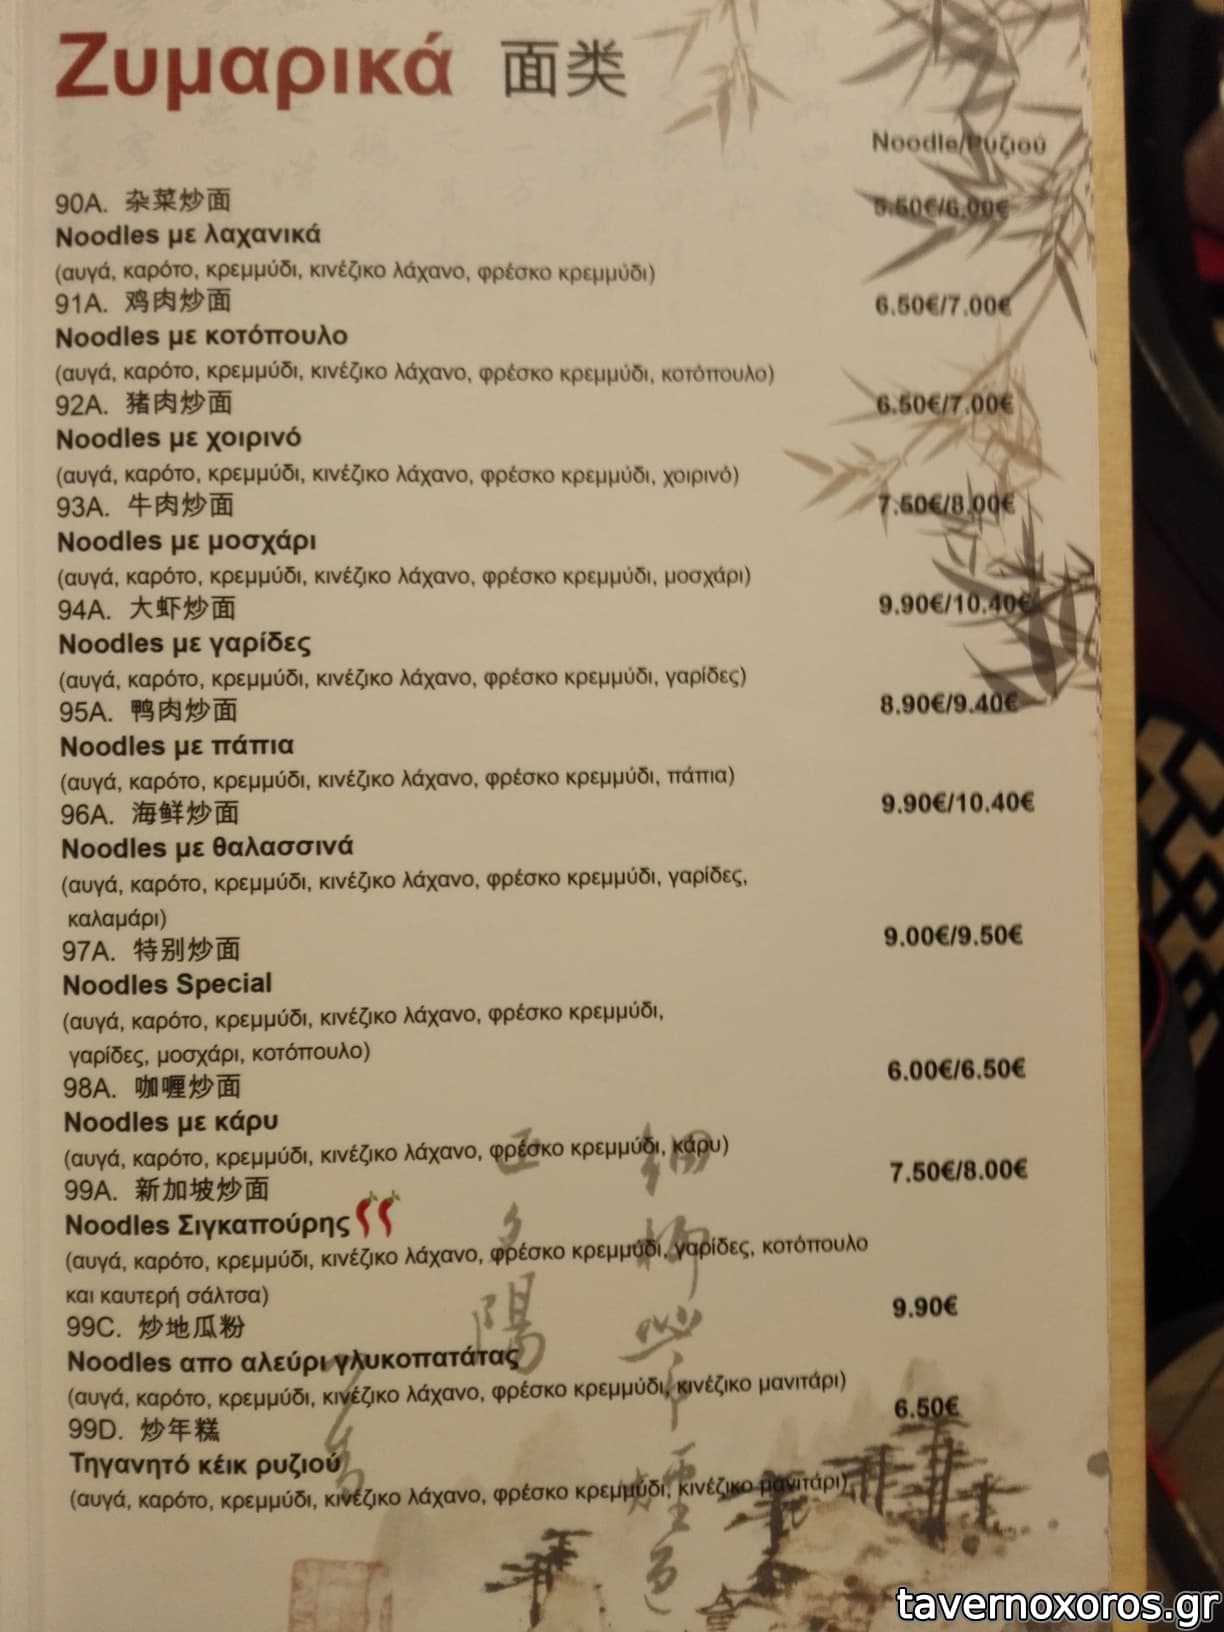 Ζυμαρικά 面类
Noodle/Ρυζιού
90A. 杂菜炒面 5.50€/6.00€
Noodles με λαχανικά
(αυγά, καρότο, κρεμμύδι, κινέζικο λάχανο, φρέσκο κρεμμύδι)
91A. 鸡肉炒面 6.50€/7.00€
Noodles με κοτόπουλο
(αυγά, καρότο, κρεμμύδι, κινέζικο λάχανο, φρέσκο κρεμμύδι, κοτόπουλο)
92A. 猪肉炒面 6.50€/7.00€
Noodles με χοιρινό
(αυγά, καρότο, κρεμμύδι, κινέζικο λάχανο, φρέσκο κρεμμύδι, χοιρινό)
93A. 牛肉炒面 7.50€/8.00€
Noodles με μοσχάρι
(αυγά, καρότο, κρεμμύδι, κινέζικο λάχανο, φρέσκο κρεμμύδι, μοσχάρι)
94A. 大虾炒面 9.90€/10.40€
Noodles με γαρίδες
(αυγά, καρότο, κρεμμύδι, κινέζικο λάχανο, φρέσκο κρεμμύδι, γαρίδες)
95A. 鸭肉炒面 8.90€/9.40€
Noodles με πάπια
(αυγά, καρότο, κρεμμύδι, κινέζικο λάχανο, φρέσκο κρεμμύδι, πάπια)
96A. 海鲜炒面 9.90€/10.40€
Noodles με θαλασσινά
(αυγά, καρότο, κρεμμύδι, κινέζικο λάχανο, φρέσκο κρεμμύδι, γαρίδες,
καλαμάρι)
97A. 特别炒面 9.00€/9.50€
Noodles Special
(αυγά, καρότο, κρεμμύδι, κινέζικο λάχανο, φρέσκο κρεμμύδι,
γαρίδες, μοσχάρι, κοτόπουλο)
98A. 咖喱炒面 6.00€/6.50€
Noodles με κάρυ
(αυγά, καρότο, κρεμμύδι, κινέζικο λάχανο, φρέσκο κρεμμύδι, κάρυ)
99A. 新加坡炒面 7.50€/8.00€
Noodles Σιγκαπούρης
(αυγά, καρότο, κρεμμύδι, κινέζικο λάχανο, φρέσκο κρεμμύδι, γαρίδες, κοτόπουλο
και καυτερή σάλτσα)
99C. 炒地瓜粉 9.90€
Noodles απο αλεύρι γλυκοπατάτας
(αυγά, καρότο, κρεμμύδι, κινέζικο λάχανο, φρέσκο κρεμμύδι, κινέζικο μανιτάρι)
99D. 炒年糕 6.50€
Τηγανητό κέικ ρυζιού
(αυγά, καρότο, κρεμμύδι, κινέζικο λάχανο, φρέσκο κρεμμύδι, κινέζικο μανιτάρι)
tavernoxoros.gr